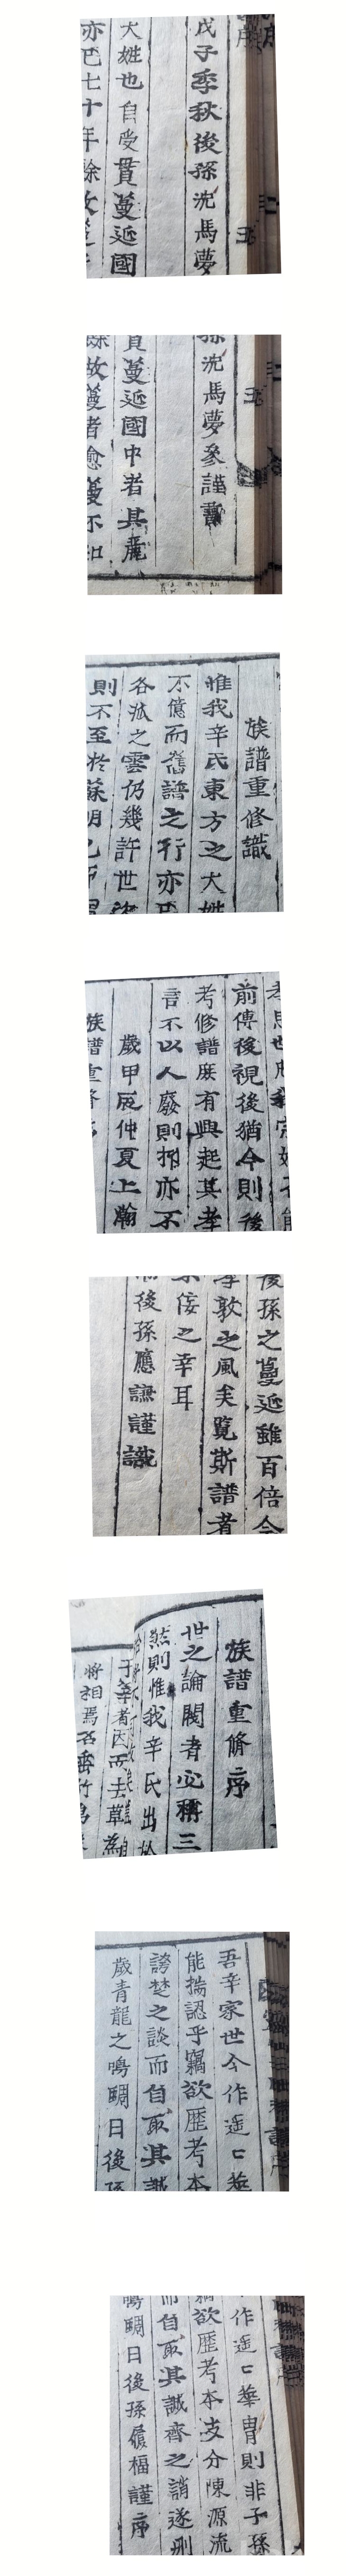 戊子季秋後孫洸馬夢
大姓也自受貫蔓延國
亦已七十年餘故
孫洸馬夢參謹書
貫蔓延國中者其麗
餘故蔓者愈蔓不知
族譜重修識
惟我辛氏東方之大姓
不億而舊譜之行亦
各派之雲仍幾許世
則不至於蘇明
前傳後視後猶今則後
考修譜庶有興起其孝
言不以人廢則抑亦不
歲甲辰仲夏上澣
族譜重脩
後孫之蔓延雖百倍今
孝敦之風矣覽斯譜者
佞之幸耳
後孫應謙謹識
族譜重脩序
世之論閥者必稱三
然則惟我辛氏出於
于莘者因而去草為
將相焉名
吾辛家世今作遥口華
能揣認乎竊欲歷考本
謗楚之談而自取其誠
歲青龍之鳴鵰日後孫
作遥口華冑則非子孫
欲歷考本支分陳源流
而自取其誠齊之誚遂刪
鳴鵰日後孫履福謹序